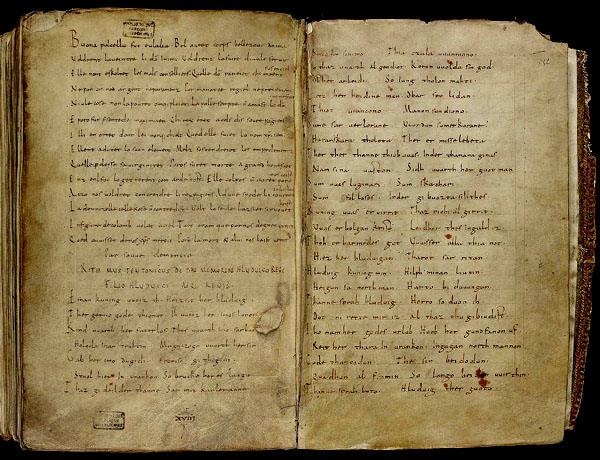 Buona pulcella fut eulalia. Bel auret corps bellezour anima
Voldrent la ueintre li do inimi. Voldrent la faire diaule seruir
Elle nont eskoltet les mals conselliers. Quelle do raneiet chi maent
Ne por or ned argent ne paramenz. Por manatce regiel ne preiement
Niule cose non la pouret omque pleier. La polle sempre non amast lo do
E por o fut presentede maximiien. Chi rex eret a cels dis soure pagiens
Il li enortet dont lei nonque chielt. Qued elle fuiet lo nom xpiien
Ellent adunet lo suon element. Melz sostendreiet les empedementz
Quelle perdesse sa uirginitet. Poros furet morte a grand honestet
Enz enl fou lo getterent com arde tost. Elle colpes non auret
A czo nos uoldret concreidre li rex pagiens. Ad une spede li roueret
La domnizelle celle kose non contredist. Volt lo seule lazsier si ruouet
In figure de colomb uolat a ciel. Tuit oram que por nos degnet
Qued auuisset de nos xps mercit. Post la mort & a lui nos laist
Par souue clementia
RITHMUS TEUTONICUS DE PIAE MEMORIAE HLUDUICO REGE
FILIO HLUDUICI AEQ REGIS
Einan kuning uueiz ih. Heizsit her hluduig
Ther gerno gode thionot. Ih uueiz her imos lonot
Kind uuarth her faterlos. Thes uuarth imo sar
Holoda inan truhtin. Magaczogo uuarth her sin
Gab her imo dugidi. Fronisc githigini
Stual hier in urankon. So bruche her es lango
Thaz gideilder thanne. Sar mit karlemanne
XVIII
Bruoder sinemo. Thia czala uuunniono
So thaz uuarth al gendiot. Koron uuolda sin god
Ob her arbeidi. So iung tholon mahti
Lietz her heidine man. Obar seo lidan
Thiot urancono. Manon sundiono
Sume sar uerlorane Uuurdun sum erkorane
Haranskara tholota. Ther er misselebeta
Ther ther thanne thiob uuas. Inder thanana ginas
Nam sina uaston. Sidh uuarth her guot man
Sum uuas luginari. Sum skachari
Sum fol loses. Inder gibuozta sih thes
Kuning uuas eruirrit. Thaz richi al girrit
Uuas erbolgan krist. Leidhor thes ingald iz
Thoh erbarmedes got. Uuisser alla thia not
Hiez her hluduigan. Tharot sar ritan
Hluduig kuning min. Hilph minan liutin
Heigun sa northman. Harto biduuungan
Thanne sprah hluduig. Herro so duon ih
Dot ni rette mir iz. Al thaz thu gibiudist
Tho nam her godes urlub. Huob her gundfanon uf
Reit her thara in urankon. Ingagan northmannon
Gode thancodun. The sin beidodun
Quadhun al fro min. So lango beidon uuir thin
Thanne sprah luto. Hluduig ther guoto